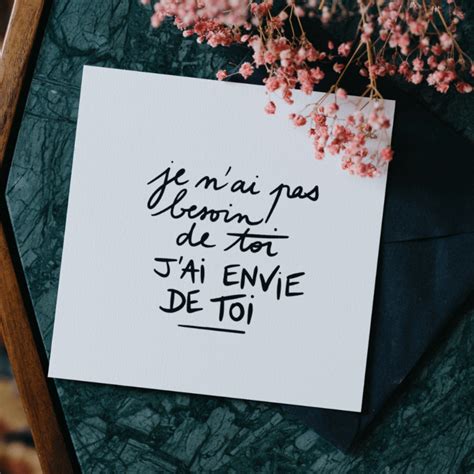 je n'ai pas
besoin
de toi
J'AI ENVIE
DE TOI